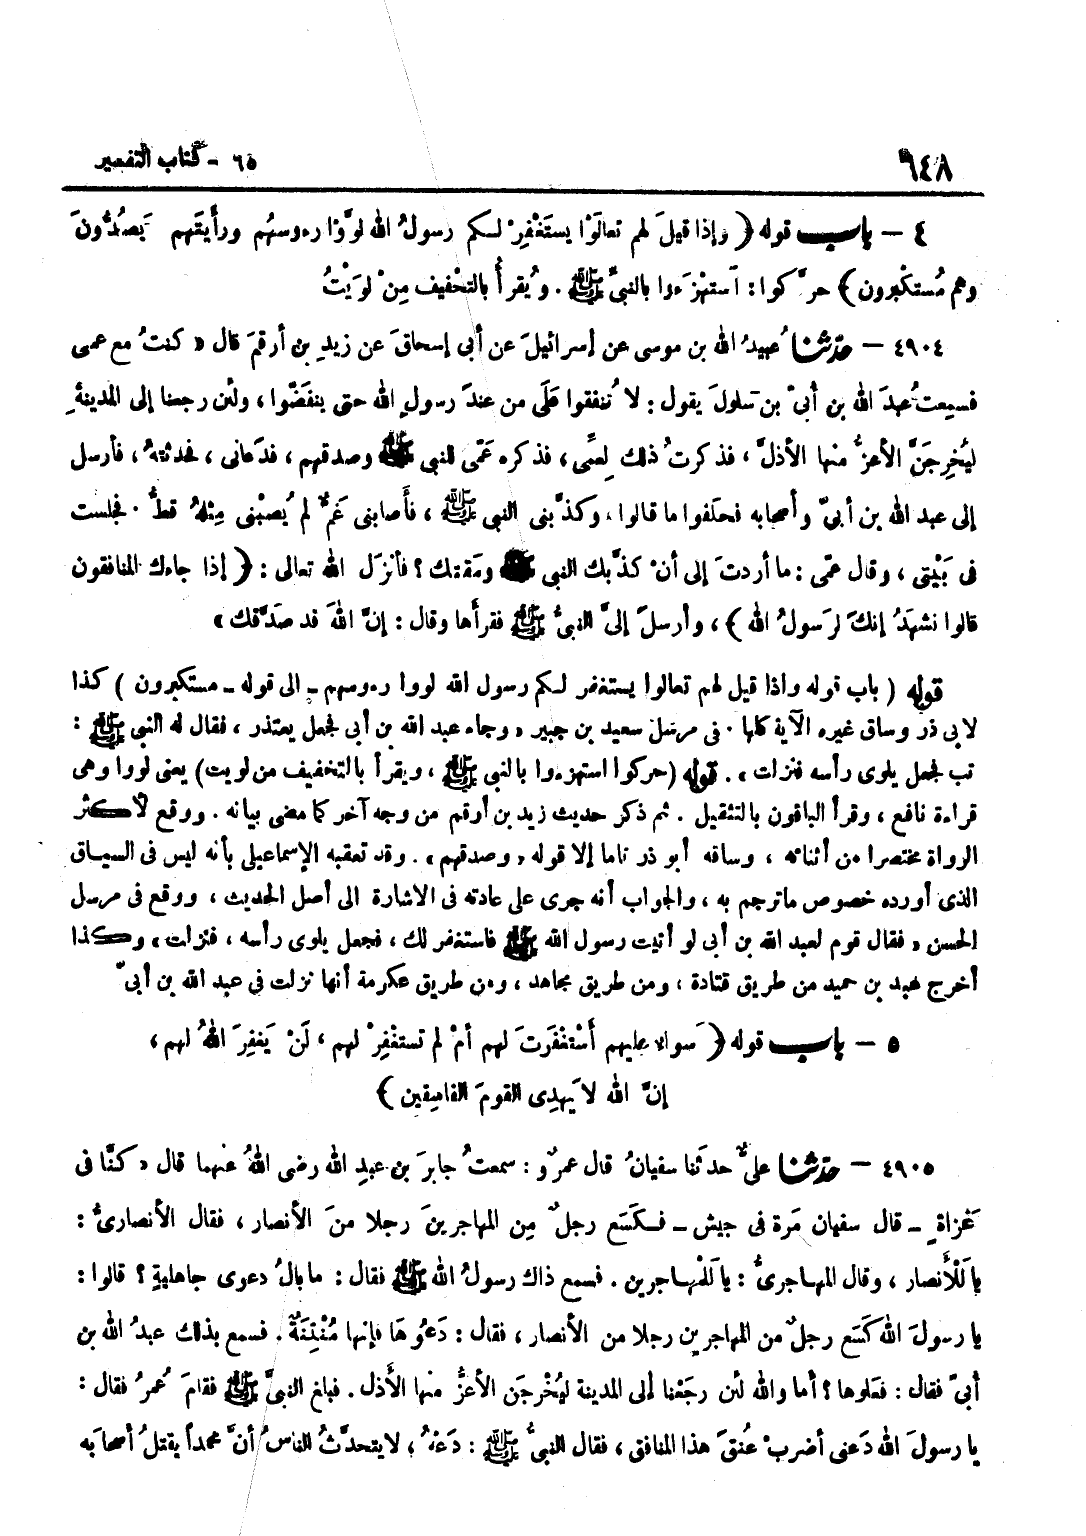 ٦٤٨ ٦٥ - كتاب التفسير
٤ – باب قوله ﴿ وإذا قيلَ لهم تعالَوْا يستَغْفِرْ لـكم رسولُ الله لوَّوْا رءوسَهُم ورأيتَهم يَصُدُّونَ
وهم مُستكْبرون ﴾ حرَّكوا : آستهْزَءوا بالنبيِّ ﷺ . ويُقرأُ بالتخْفيف مِنْ لوَيْتُ
٤٩٠٤ – حدّثنا عُبيدُ الله بن موسى عن إسرائيلَ عن أبى إسحاقَ عن زيدِ بن أرقمَ قال « كنتُ مع عمى
فسمِعتُ عبدَ الله بن أبىّ بن سَلولَ يقول : لا تُنفقوا عَلَى من عندَ رسولِ الله حتى ينفَضّوا ، ولئن رجعنا إلى المدينةِ
ليُخرِجَنَّ الأعزُّ منها الأذلَّ ، فذكرتُ ذلك لِعمِّى ، فذكره عَمّى للنبى ﷺ وصدقهم ، فدَعانى ، فحدثتهُ ، فأرسل
إلى عبد الله بن أبىّ وأصحابه فحلَفوا ما قالوا ، وكذَّبنى النبى ﷺ ، فأصابنى غَمٌّ لم يُصبْنى مِثلهُ قطُّ . فجلست
فى بَيْتى ، وقال عمّى : ما أردتَ إلى أنْ كذَّبك النبى ﷺ ومَقتك ؟ فأنزَل اللهُ تعالى : ﴿ إذا جاءك المنافقون
قالوا نشهَدُ إنكَ لرَسولُ الله ﴾ ، وأرسلَ إلىَّ النبىُّ ﷺ فقرأها وقال : إنَّ اللهَ قد صدَّقك »
قوله ( باب قوله واذا قيل لهم تعالوا يستغفر لـكم رسول الله لووا رءوسهم ـ الى قوله ـ مستكبرون ) كذا
لابى ذر وساق غيره الآية كلها . فى مرسل سعيد بن جبير « وجاء عبد الله بن أبى فجعل يعتذر ، فقال له النبى ﷺ :
تب فجعل يلوى رأسه فنزلت » . قوله (حركوا استهزءوا بالنبى ﷺ ، ويقرأ بالتخفيف من لويت) يعنى لووا وهى
قراءة نافع ، وقرأ الباقون بالتثقيل . ثم ذكر حديث زيد بن أرقم من وجه آخر كما مضى بيانه . ووقع لأكثر
الرواة مختصرا من أثنائه ، وساقه أبو ذر تاما إلا قوله « وصدقهم » . وقد تعقبه الإسماعيلى بأنه ليس فى السياق
الذى أورده خصوص ماترجم به ، والجواب أنه جرى على عادته فى الاشارة الى أصل الحديث ، ووقع فى مرسل
الحسن « فقال قوم لعبد الله بن أبى لو أتيت رسول الله ﷺ فاستغفر لك ، فجعل يلوى رأسه ، فنزلت » وكذا
أخرج عبد بن حميد من طريق قتادة ، ومن طريق مجاهد ، ومن طريق عكرمة أنها نزلت فى عبد الله بن أبىّ
٥ – باب قوله ﴿ سَوالا عليهم أَسْتغْفَرتَ لهم أمْ لم تستغفِرْ لهم ، لَنْ يَغفِرَ اللهُ لهم ،
إنَّ الله لا يَهدِى القومَ الفاسِقين ﴾
٤٩٠٥ – حدّثنا علىٌّ حدثَنا سفيانُ قال عمرٌو : سمعتُ جابرَ بن عبدِ الله رضى اللهُ عنهما قال « كنَّا فى
غَزاةٍ ـ قال سفيان مَرة فى جيش ـ فـكسَع رجلٌ مِن المهاجرينَ رجلا منَ الأنصار ، فقال الأنصارىُّ :
يا لَلأَنصار ، وقال المهاجرىُّ : يا لَلْمهاجرين . فسمع ذاك رسولُ الله ﷺ فقال : ما بالُ دعوى جاهليةٍ ؟ قالوا :
يا رسولَ الله كَسَع رجلٌ من المهاجرين رجلا من الأنصار ، فقال : دَعُوها فإنها مُنْتِنَةٌ . فسمع بذلك عبدُ الله بن
أبىّ فقال : فعَلوها ؟ أما والله لئن رجَعْنا إلى المدينة ليُخْرجَن الأعزُّ منها الأَذل . فبلغ النبىَّ ﷺ فقامَ عُمرُ فقال :
يا رسولَ الله دَعنى أضربْ عُنقَ هذا المنافق ، فقال النبىُّ ﷺ : دَعهُ ، لا يتحدَّثُ الناسُ أنَّ محمداً يقتلُ أصحابَه